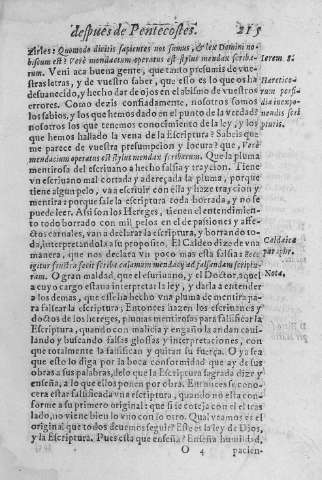 despues de Pentecostes. 215
zirles: Quomodo dicitis sapientes nos sumus, & lex Domini no-
biscum est? Verè mendacium operatus est stylus mendax scribarum. Ierem. 8.
rum. Veni aca buena gente, que tanto presumis de vues-
tras letras, y de vuestro saber, que esso es lo que os ha
desuanecido, y hecho dar de ojos en el abismo de vuestros Hæretico-
errores. Como dezis confiadamente, nosotros somos rum perfi-
los sabios, y los que hemos dado en el punto de la verdad? dia inexpo-
nosotros los que tenemos conocimiento de la ley, y los nendis scri
que hemos hallado la vena de la Escriptura? Sabeis que pturis.
me parece de vuestra presumpcion y locura? que, Verè
mendacium operatus est stylus mendax scribarum. Que la pluma
mentirosa del escriuano a hecho falsia y traycion. Tiene
vn escriuano mal cortada y adereçada la pluma, porque
tiene algun pelo, va a escriuir con ella y haze traycion y
mentira: porque sale la escriptura toda borrada, y no se
puede leer. Assi son los Hereges, tienen el entendimien-
to todo borrado con mil pelos en el de passiones y affec-
ctos carnales, van a declarar la escriptura, y borrando to-
da, interpretandola a su proposito. El Caldeo dize de vna Caldaica
manera, que nos declara vn poco mas esta falsia: Ecce paraphr.
igitur frustra fecit scriba calamum mendacij ad falsandam scriptu-
ram. O gran maldad, que el escriuano, y el Doctor, aquel Nota,
a cuyo cargo estaua interpretar la ley, y darla a entender
a los demas, que esse ha hecho vna pluma de mentira pa-
ra falsear la escriptura, Entonces hazen los escriuanos y
doctos de los hereges, plumas mentirosas para falsificar la
Escriptura, quando con malicia y engaño la andan cauil-
lando y buscando falsas glossas y interpretaciones, con
que totalmente la falsifican y quitan su fuerça. O ya sea
que esto lo diga por la poca conformidad que ay de sus
obras a sus palabras, delo que la Escriptura sagrada dize y
enseña, a lo que ellos ponen por obra. Entonces se cono-
cera estar falsificada vna escriptura, quando ella no con-
suena a su primero original: que si se coteja con el el tras
lado, no viene bien lo vno con lo otro. Qual veamos es el
original que todos deuemos seguir? Este es la ley de Dios,
y la Escriptura. Pues esta que enseña? Enseña humildad,
O 4 pacien-